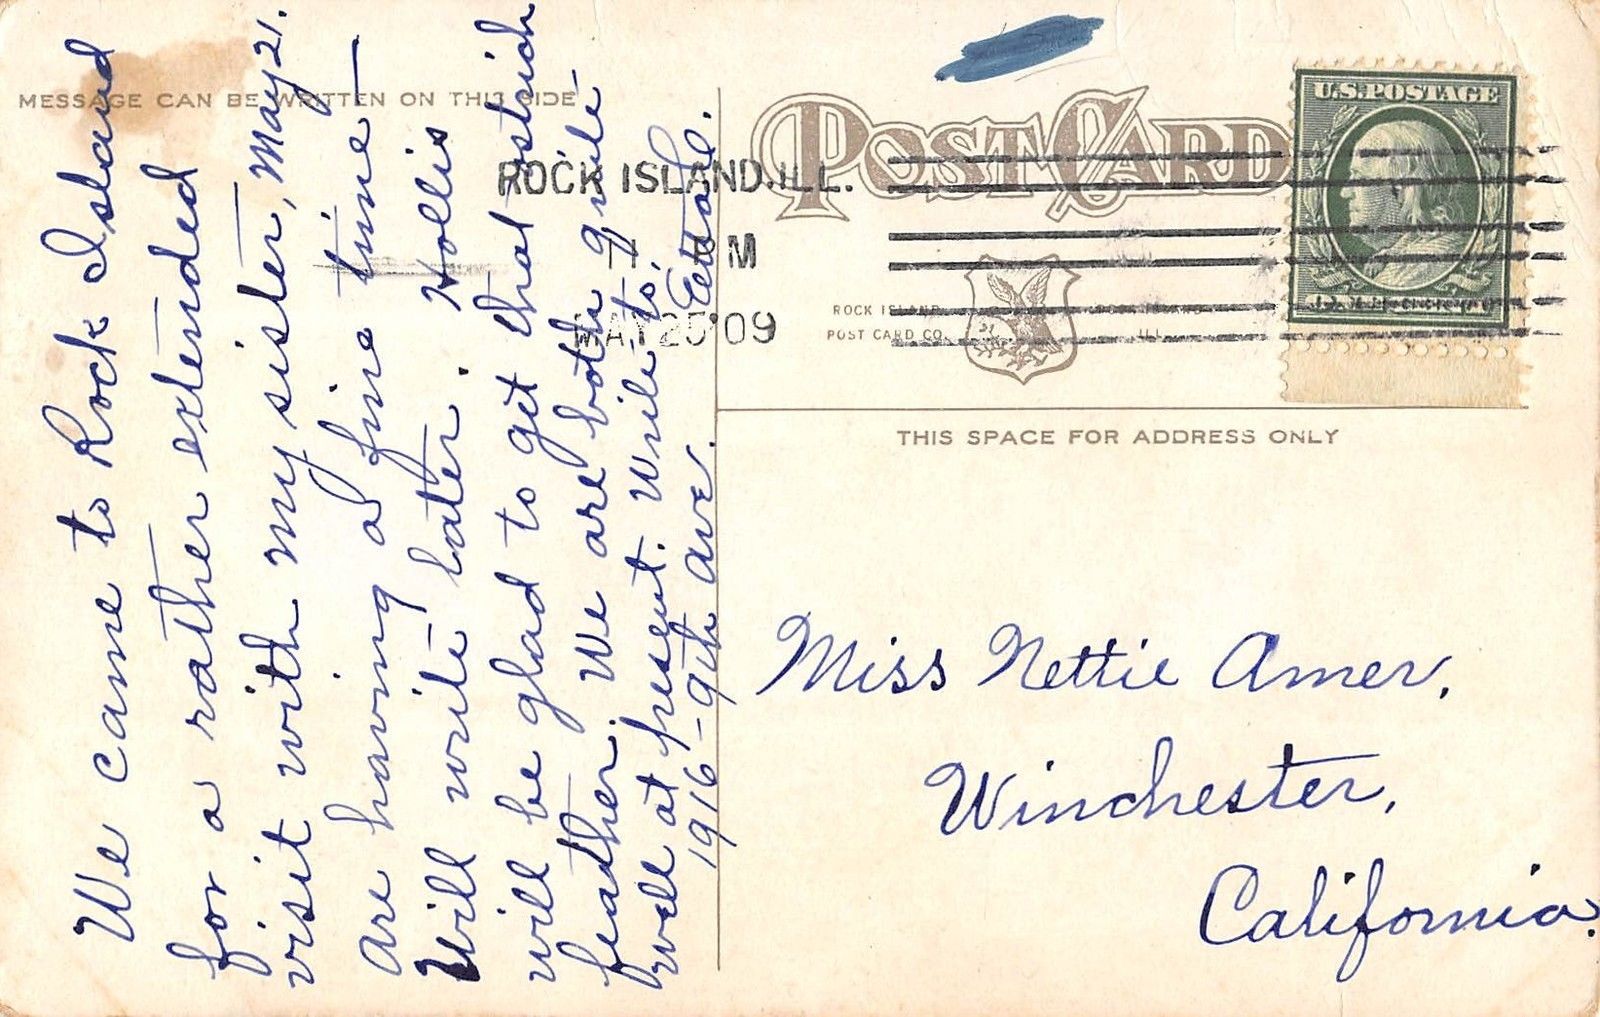 MESSAGE CAN BE WRITTEN ON THIS SIDE
POST CARD
U.S. POSTAGE
ROCK ISLAND, ILL.
7 PM
MAY 25 '09
ROCK ISLAND
POST CARD CO.
ROCK ISLAND
ILL.
THIS SPACE FOR ADDRESS ONLY
We came to Rock Island
for a rather extended
visit with my sister, May 21.
Are having a fine time –
Will write later. Hollis
will be glad to get that ostrich
feather. We are both quite
well at present. Write to,
1916-9th Ave.
Miss Nettie Amer,
Winchester,
California.